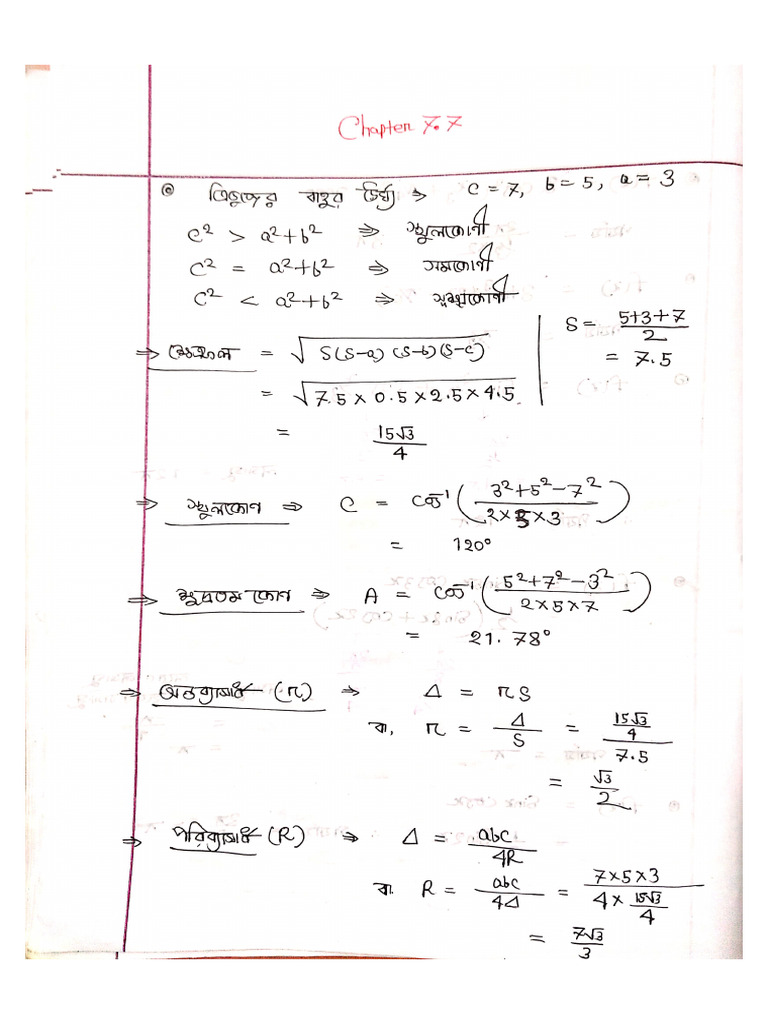 Chapter 7.7
ত্রিভুজের বাহুর দৈর্ঘ্য ⇒ c = 7, b = 5, a = 3
c² > a²+b² ⇒ স্থূলকোণী
c² = a²+b² ⇒ সমকোণী
c² < a²+b² ⇒ সূক্ষ্মকোণী
S = (5+3+7)/2
= 7.5
⇒ ক্ষেত্রফল = √(S(S-a)(S-b)(S-c))
= √(7.5 × 0.5 × 2.5 × 4.5)
= 15√3/4
⇒ স্থূলকোণ ⇒ C = cos⁻¹((3²+5²-7²)/(2×5×3))
= 120°
⇒ ক্ষুদ্রতম কোণ ⇒ A = cos⁻¹((5²+7²-3²)/(2×5×7))
= 21.78°
⇒ অন্তব্যাসার্ধ (r) ⇒ Δ = rS
বা, r = Δ/S = (15√3/4)/7.5
= √3/2
⇒ পরিব্যাসার্ধ (R) ⇒ Δ = abc/4R
বা, R = abc/4Δ = (7×5×3)/(4 × 15√3/4)
= 7√3/3